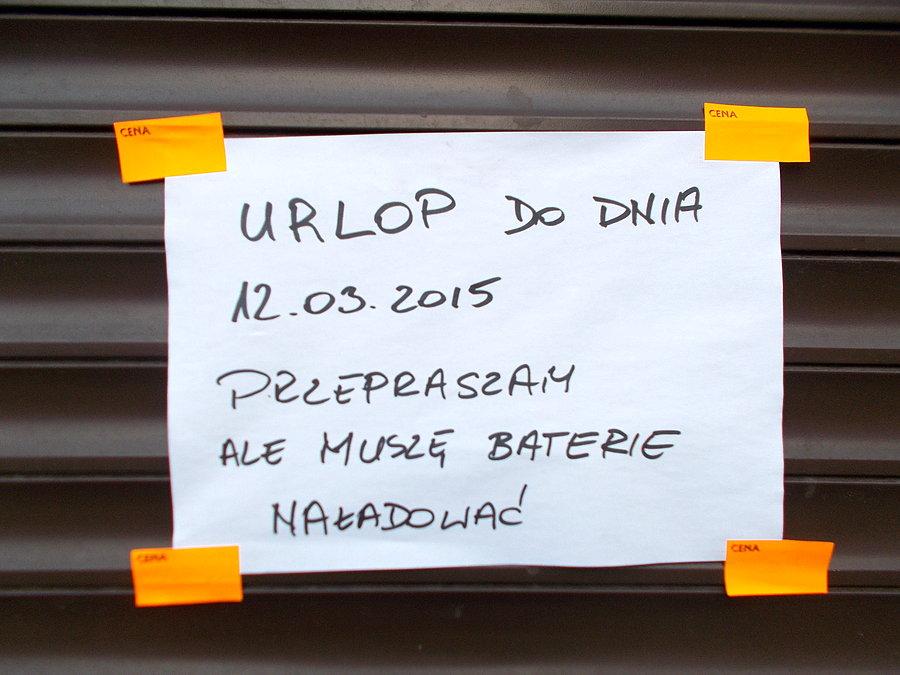 CENA
CENA
URLOP DO DNIA
12.03.2015
PRZEPRASZAM
ALE MUSZĘ BATERIE
NAŁADOWAĆ
CENA
CENA